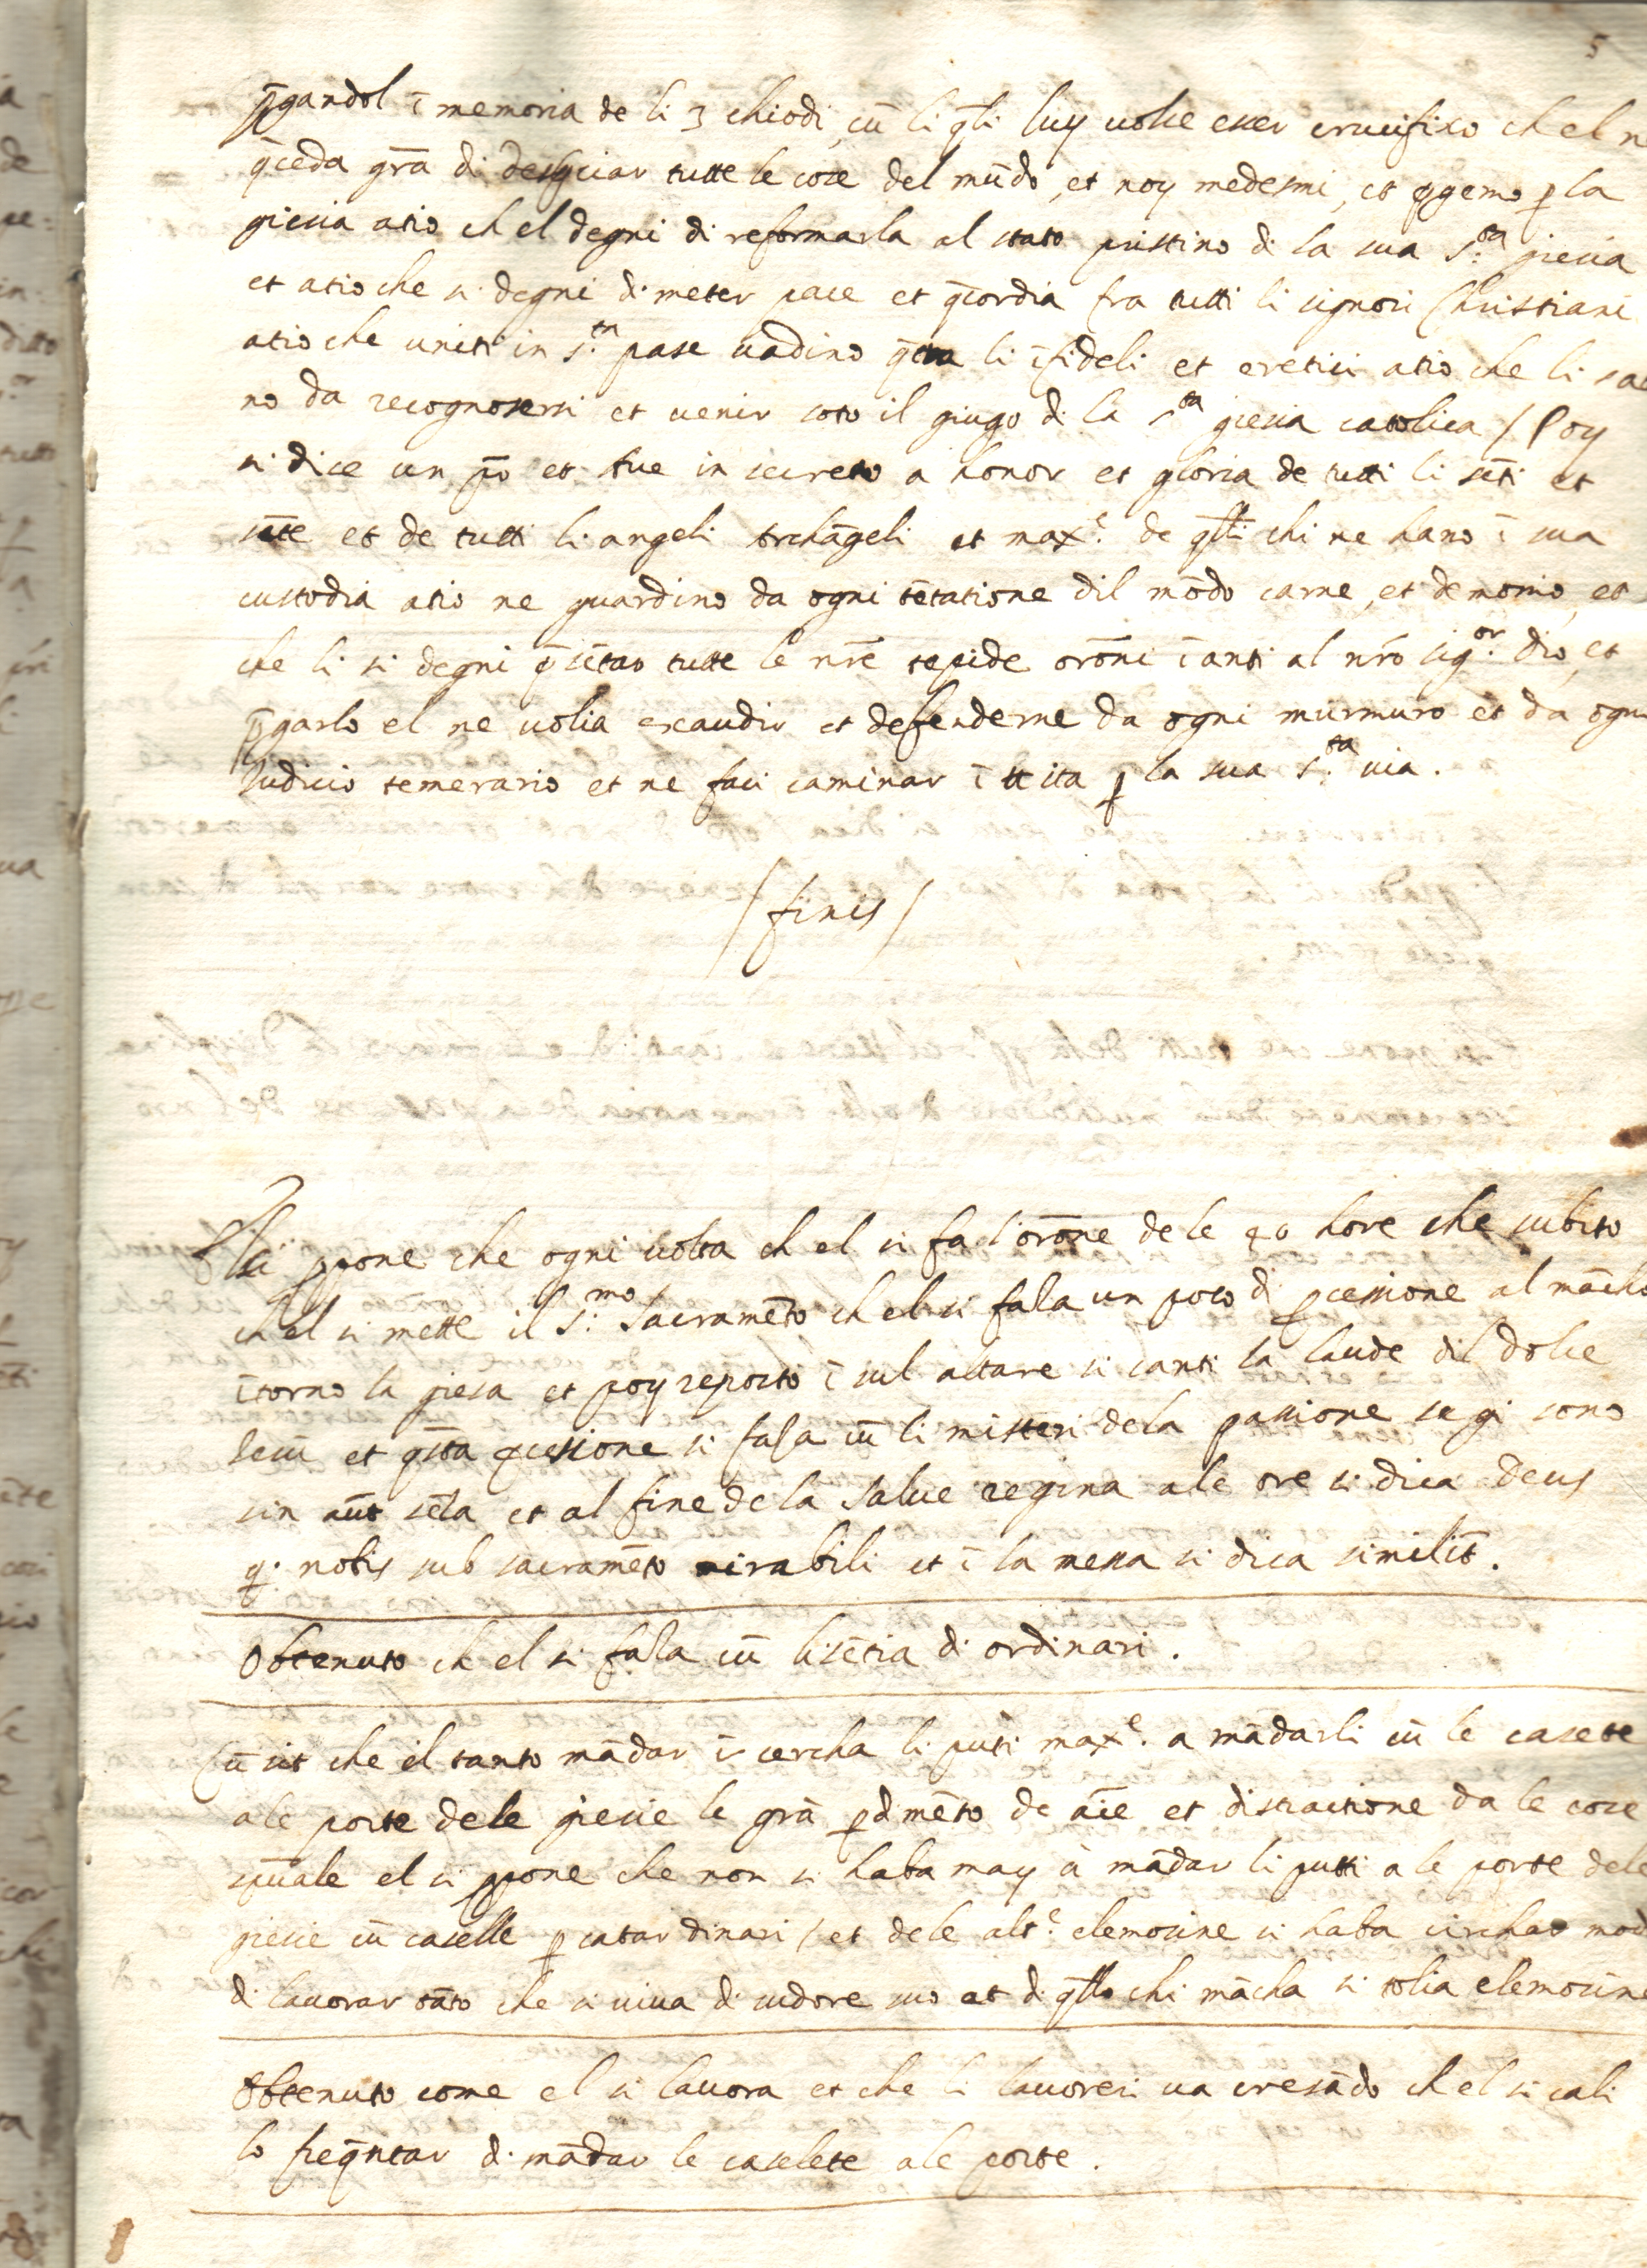 5
p̄gandol ī memoria de li 3 chiodi, cū li q̄li luy uolse eser crucifixo ch el n
q̄ceda gr̄a di desp̱ciar tutte le cose del mūdo, et noy medesmi, et p̱gemo p̱ la
giesia atio ch el degni di reformarla al stato pristino di la sua s.ta giesia
et atio che si degni di meter pace et q̄cordia fra tutti li signori Christiani
atio che uniti in s.ta pase uadino q̄tra li īfideli et eretici atio che li
no da recognosersi et uenir soto il giugo di la s.ta giesia catolica / Poy
si dice un p̄r et Aue in secreto a honor et gloria de tutti li sc̄ti et
sc̄te et de tutti li angeli Archāgeli et max.e de q̄lli chi ne hano ī sua
custodia atio ne guardino da ogni tētatione dil mōdo carne, et demonio, et
che li si degni p̄sētar tutte le nr̄e tepide orōni īanti al nr̄o sig.or dio, et
p̄garlo el ne uolia exaudir et defenderne da ogni murmuro et da ogni
Iudicio temerario et ne faci caminar ī uita p̱ la sua s.ta uia.
/ finis /
El si p̱pone che ogni uolta ch el si fa l orōne de le 40 hore che subito
ch el si mette il s.mo Sacramēto ch el si fasa un poco di p̱cessione al mācho
ītorno la giesa et poy reposto ī sul altare si canti la laude dil dolce
Iesū et q̄sta p̱cesione si fasa cū li misteri de la passione se gi sono
sin aūt sēza et al fine de la Salue regina a le ore si dica Deus
q. nobis sub sacramēto mirabili et ī la messa si dica similit̄.
Obtenuto ch el si fasa cū lisētia di ordinari.
Cū sit che el tanto mādar ī cercha li puti max.e a mādarli cū le casete
a le porte dele giesie le grā p̱dimēto de aīe et distractione da le cose
spūale el si p̱pone che non si haba may a mādar li putti a le porte dele
giesie cū caselle p̱ catar dinari / et dele alt.e elemosine si haba circhar mod
di lauorar tāto che si uiua di sudore suo et di q̄llo chi mācha si tolia elemosine
Obtenuto come el si lauora et che li lauoreri ua cresādo ch el si cali
lo freq̄ntar di mādar le caselete a le porte.